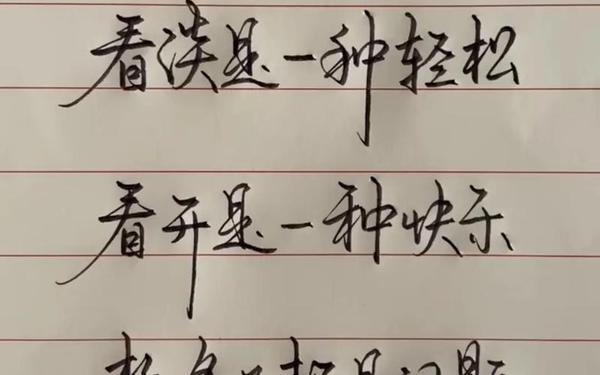 看淡是一种轻松
看开是一种快乐